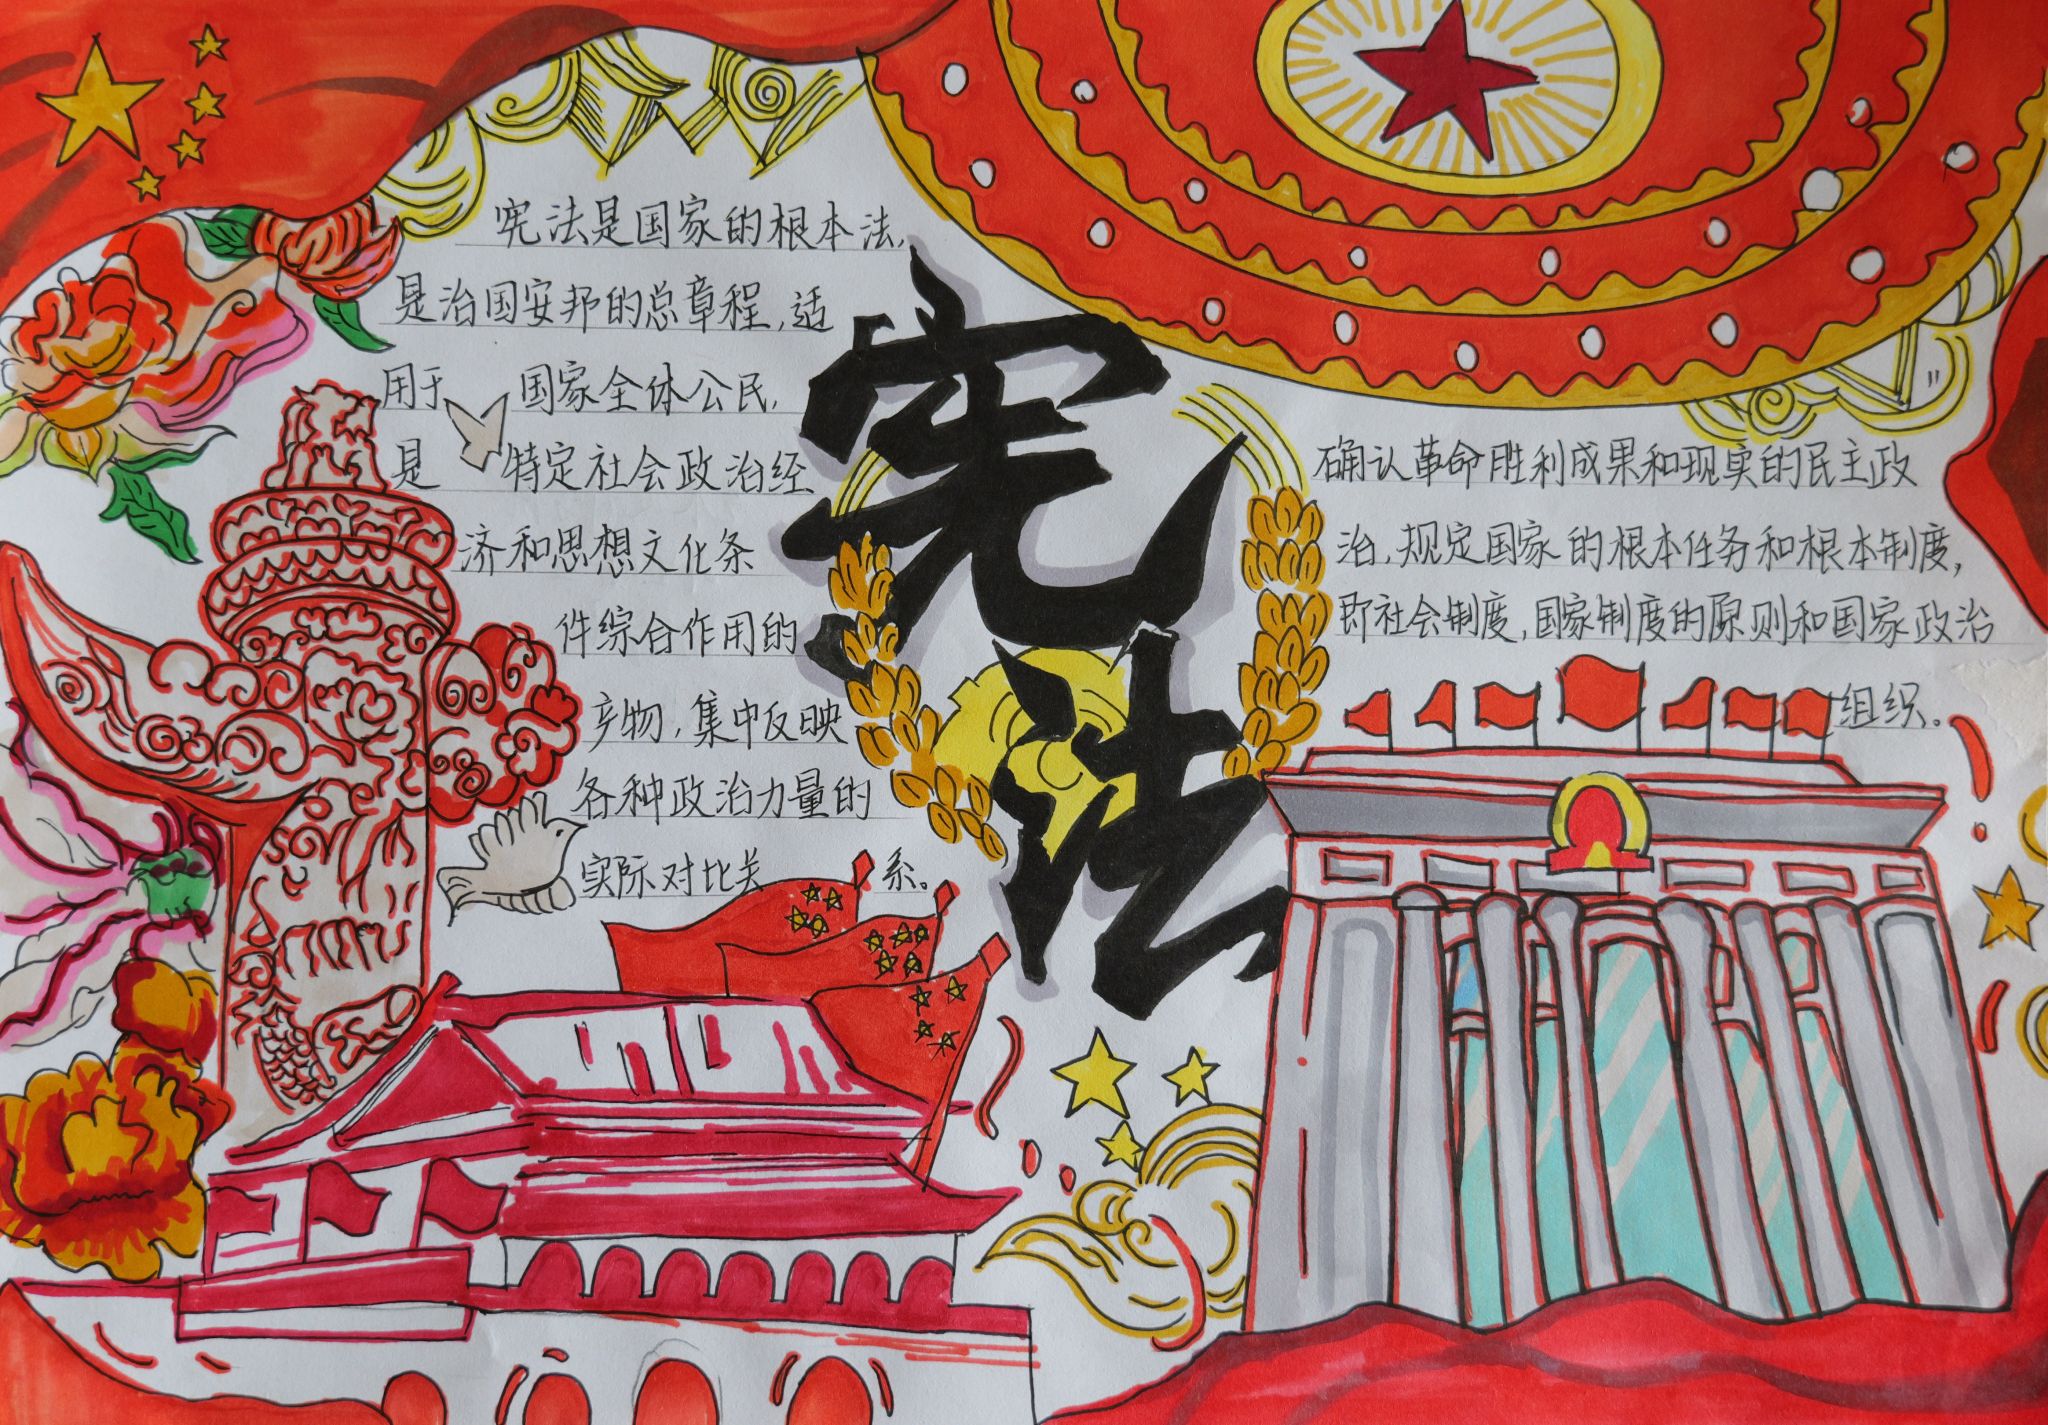 宪法是国家的根本法,
是治国安邦的总章程,适
用于 国家全体公民,
是 特定社会政治经
济和思想文化条
件综合作用的
产物,集中反映
各种政治力量的
实际对比关 系。
宪法
确认革命胜利成果和现实的民主政
治,规定国家的根本任务和根本制度,
即社会制度,国家制度的原则和国家政治
组织。